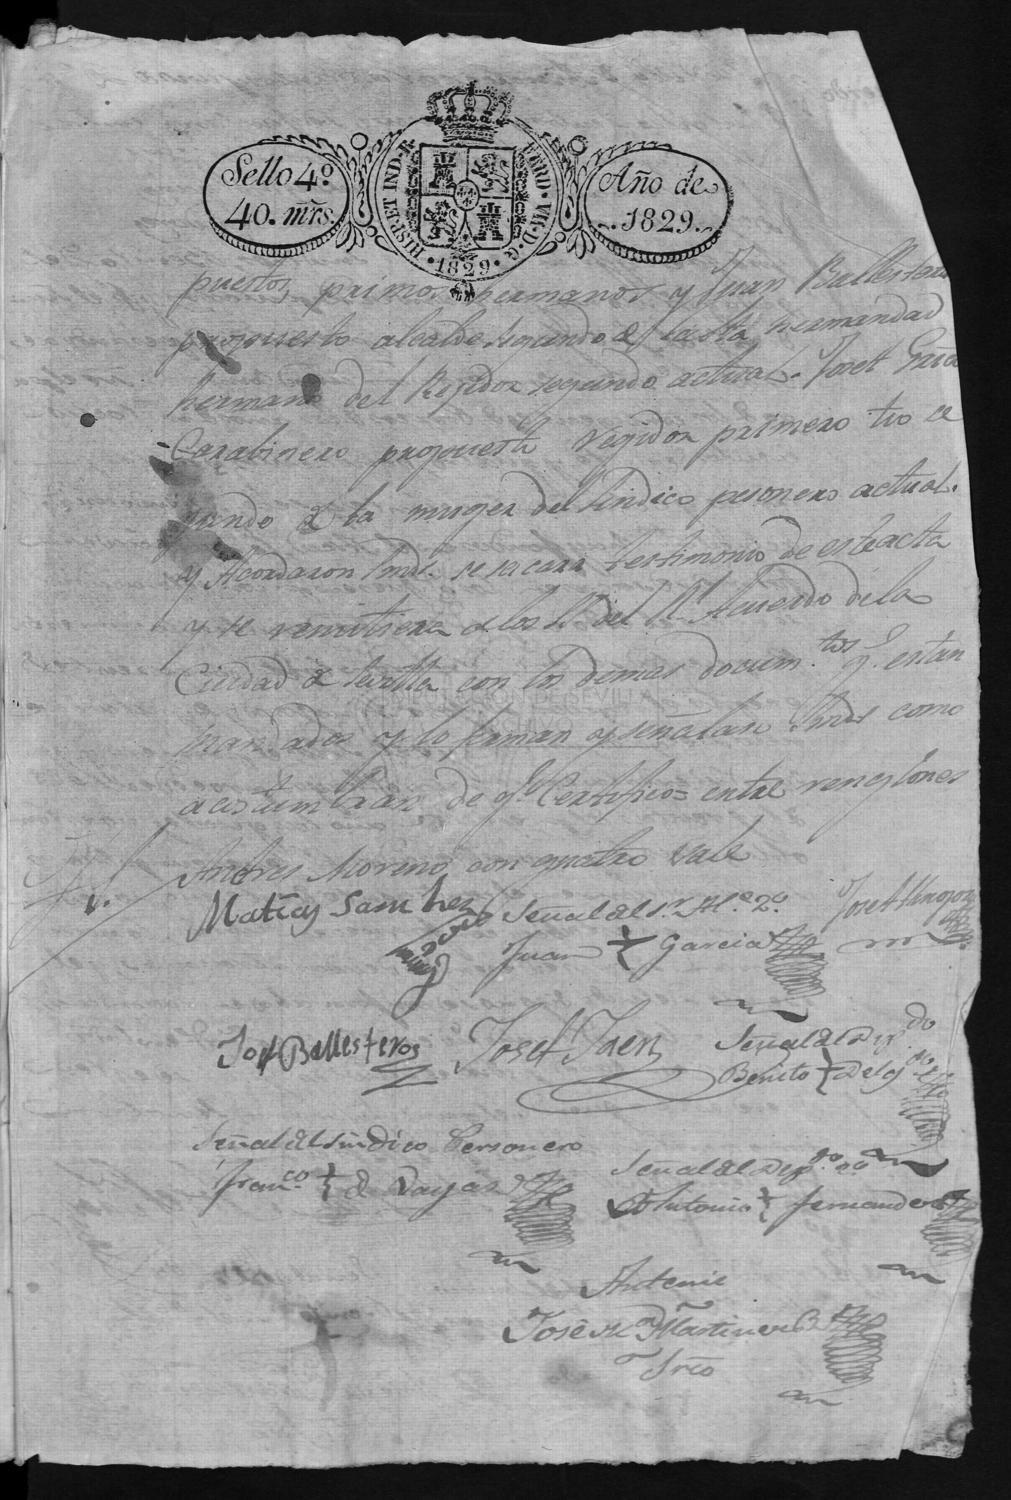 Sello 4º
40. mrs.
HISP. ET IND. R. FERD. VII. D. G.
1829
Año de
1829.
puestos, primos hermanos y Juan Ballesteros
propuesto alcalde segundo de la Sta hermandad
hermano del Regidor segundo actual. Josef Garcia
Carabinero propuesto regidor primero tio ca
rnando de la muger del Sindico personero actual.
y Acordaron se sacara testimonio de este acta
y se remitiera a los S. del Rl Acuerdo de la
Ciudad de Sevilla con los demas docum.tos q. estan
mandados y lo firman y señalan como
acostumbran de q. Certifico = entre renglones
Andres Moreno con quatro vale
DIPUTACION DE SEVILLA
ARCHIVO
Matias Sanchez
Señal del Sr. Ale. 2º.
Juan + Garcia
Josef
Josef Ballesteros
Josef Jaen
Señal del Dip.do
Benito + Delg.do
Señal del Sindico Personero
Franco + de Vargas
Señal del Dip.do 2º
Antonio + Fernandez
Antemi
José Martinez
Srio